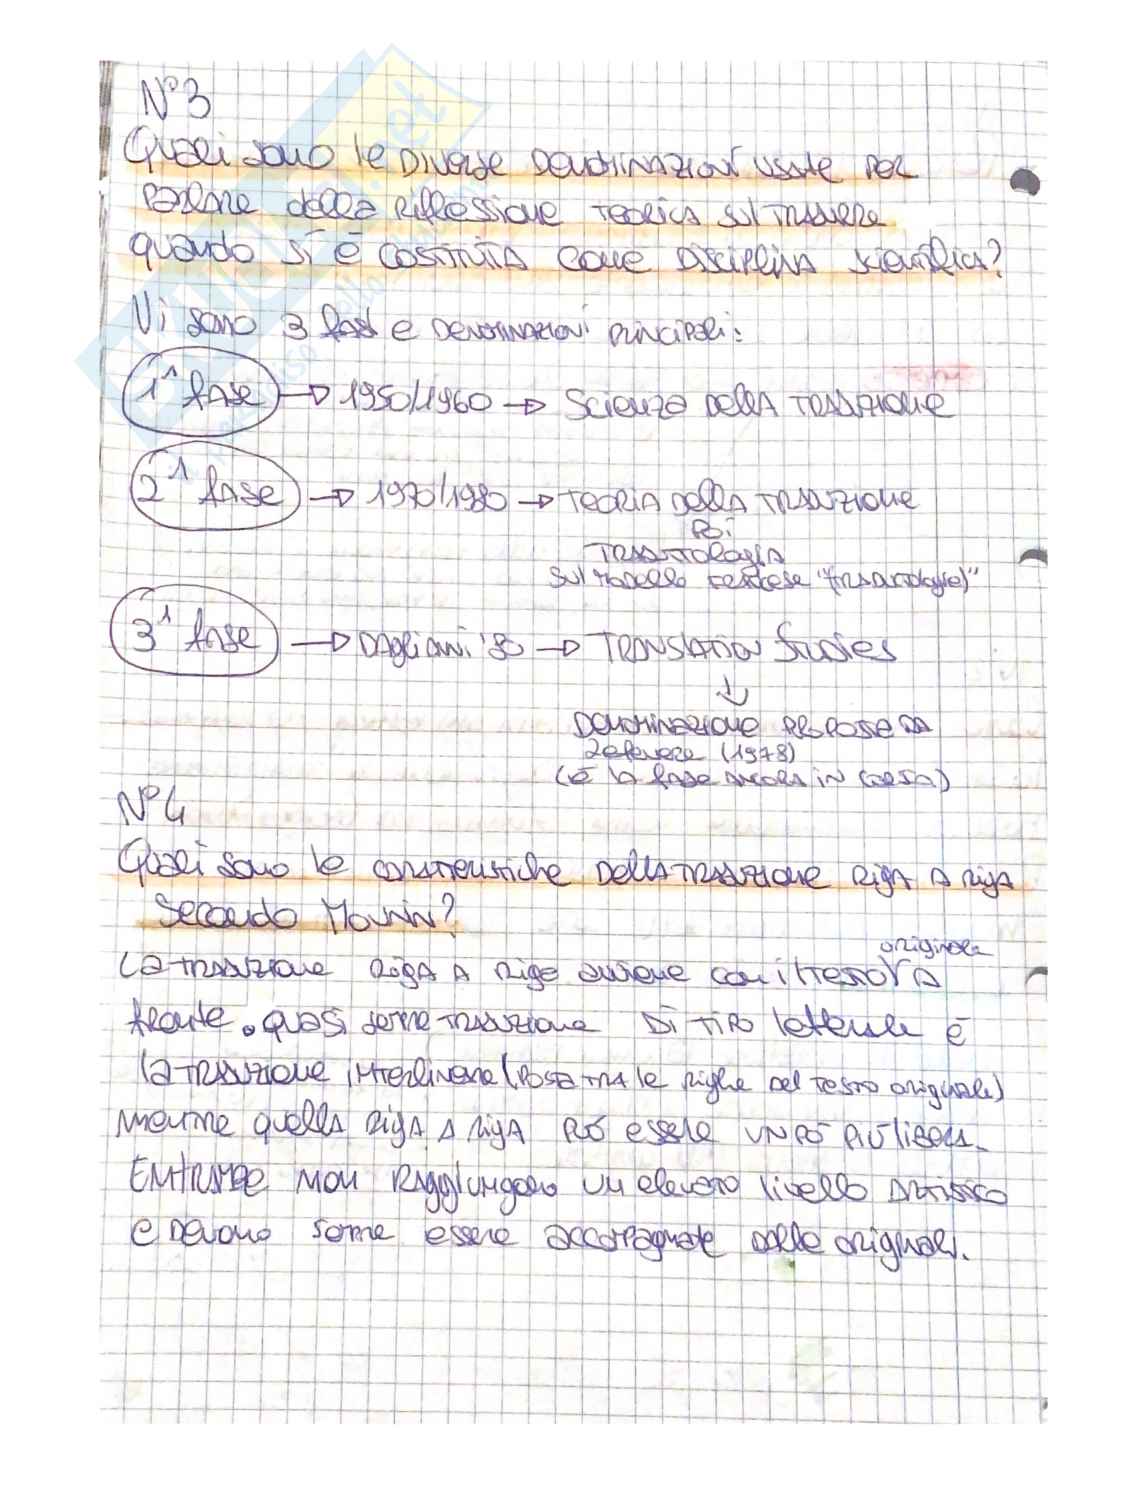 N°3
Quali sono le diverse denominazioni usate per
parlare della riflessione teorica sul tradurre
quando si è costituita come disciplina scientifica?
Vi sono 3 fasi e denominazioni principali:
1^ fase → 1950/1960 → Scienza della traduzione
2^ fase → 1970/1980 → Teoria della traduzione
poi
traduttologia
sul modello francese "(traductologie)"
3^ fase → dagli anni '80 → Translation Studies
↓
denominazione proposte da
Lefevere (1978)
(è la fase ancora in corso)
N°4
Quali sono le caratteristiche della traduzione riga a riga
secondo Mounin?
originale
La traduzione riga a riga avviene con il testo a
fronte. quasi sempre traduzione di tipo letterale è
la traduzione interlineare (posta tra le righe del testo originale)
mentre quella riga a riga può essere un po' più libera.
Entrambe non raggiungono un elevato livello artistico
e devono sempre essere accompagnate dalle originali.